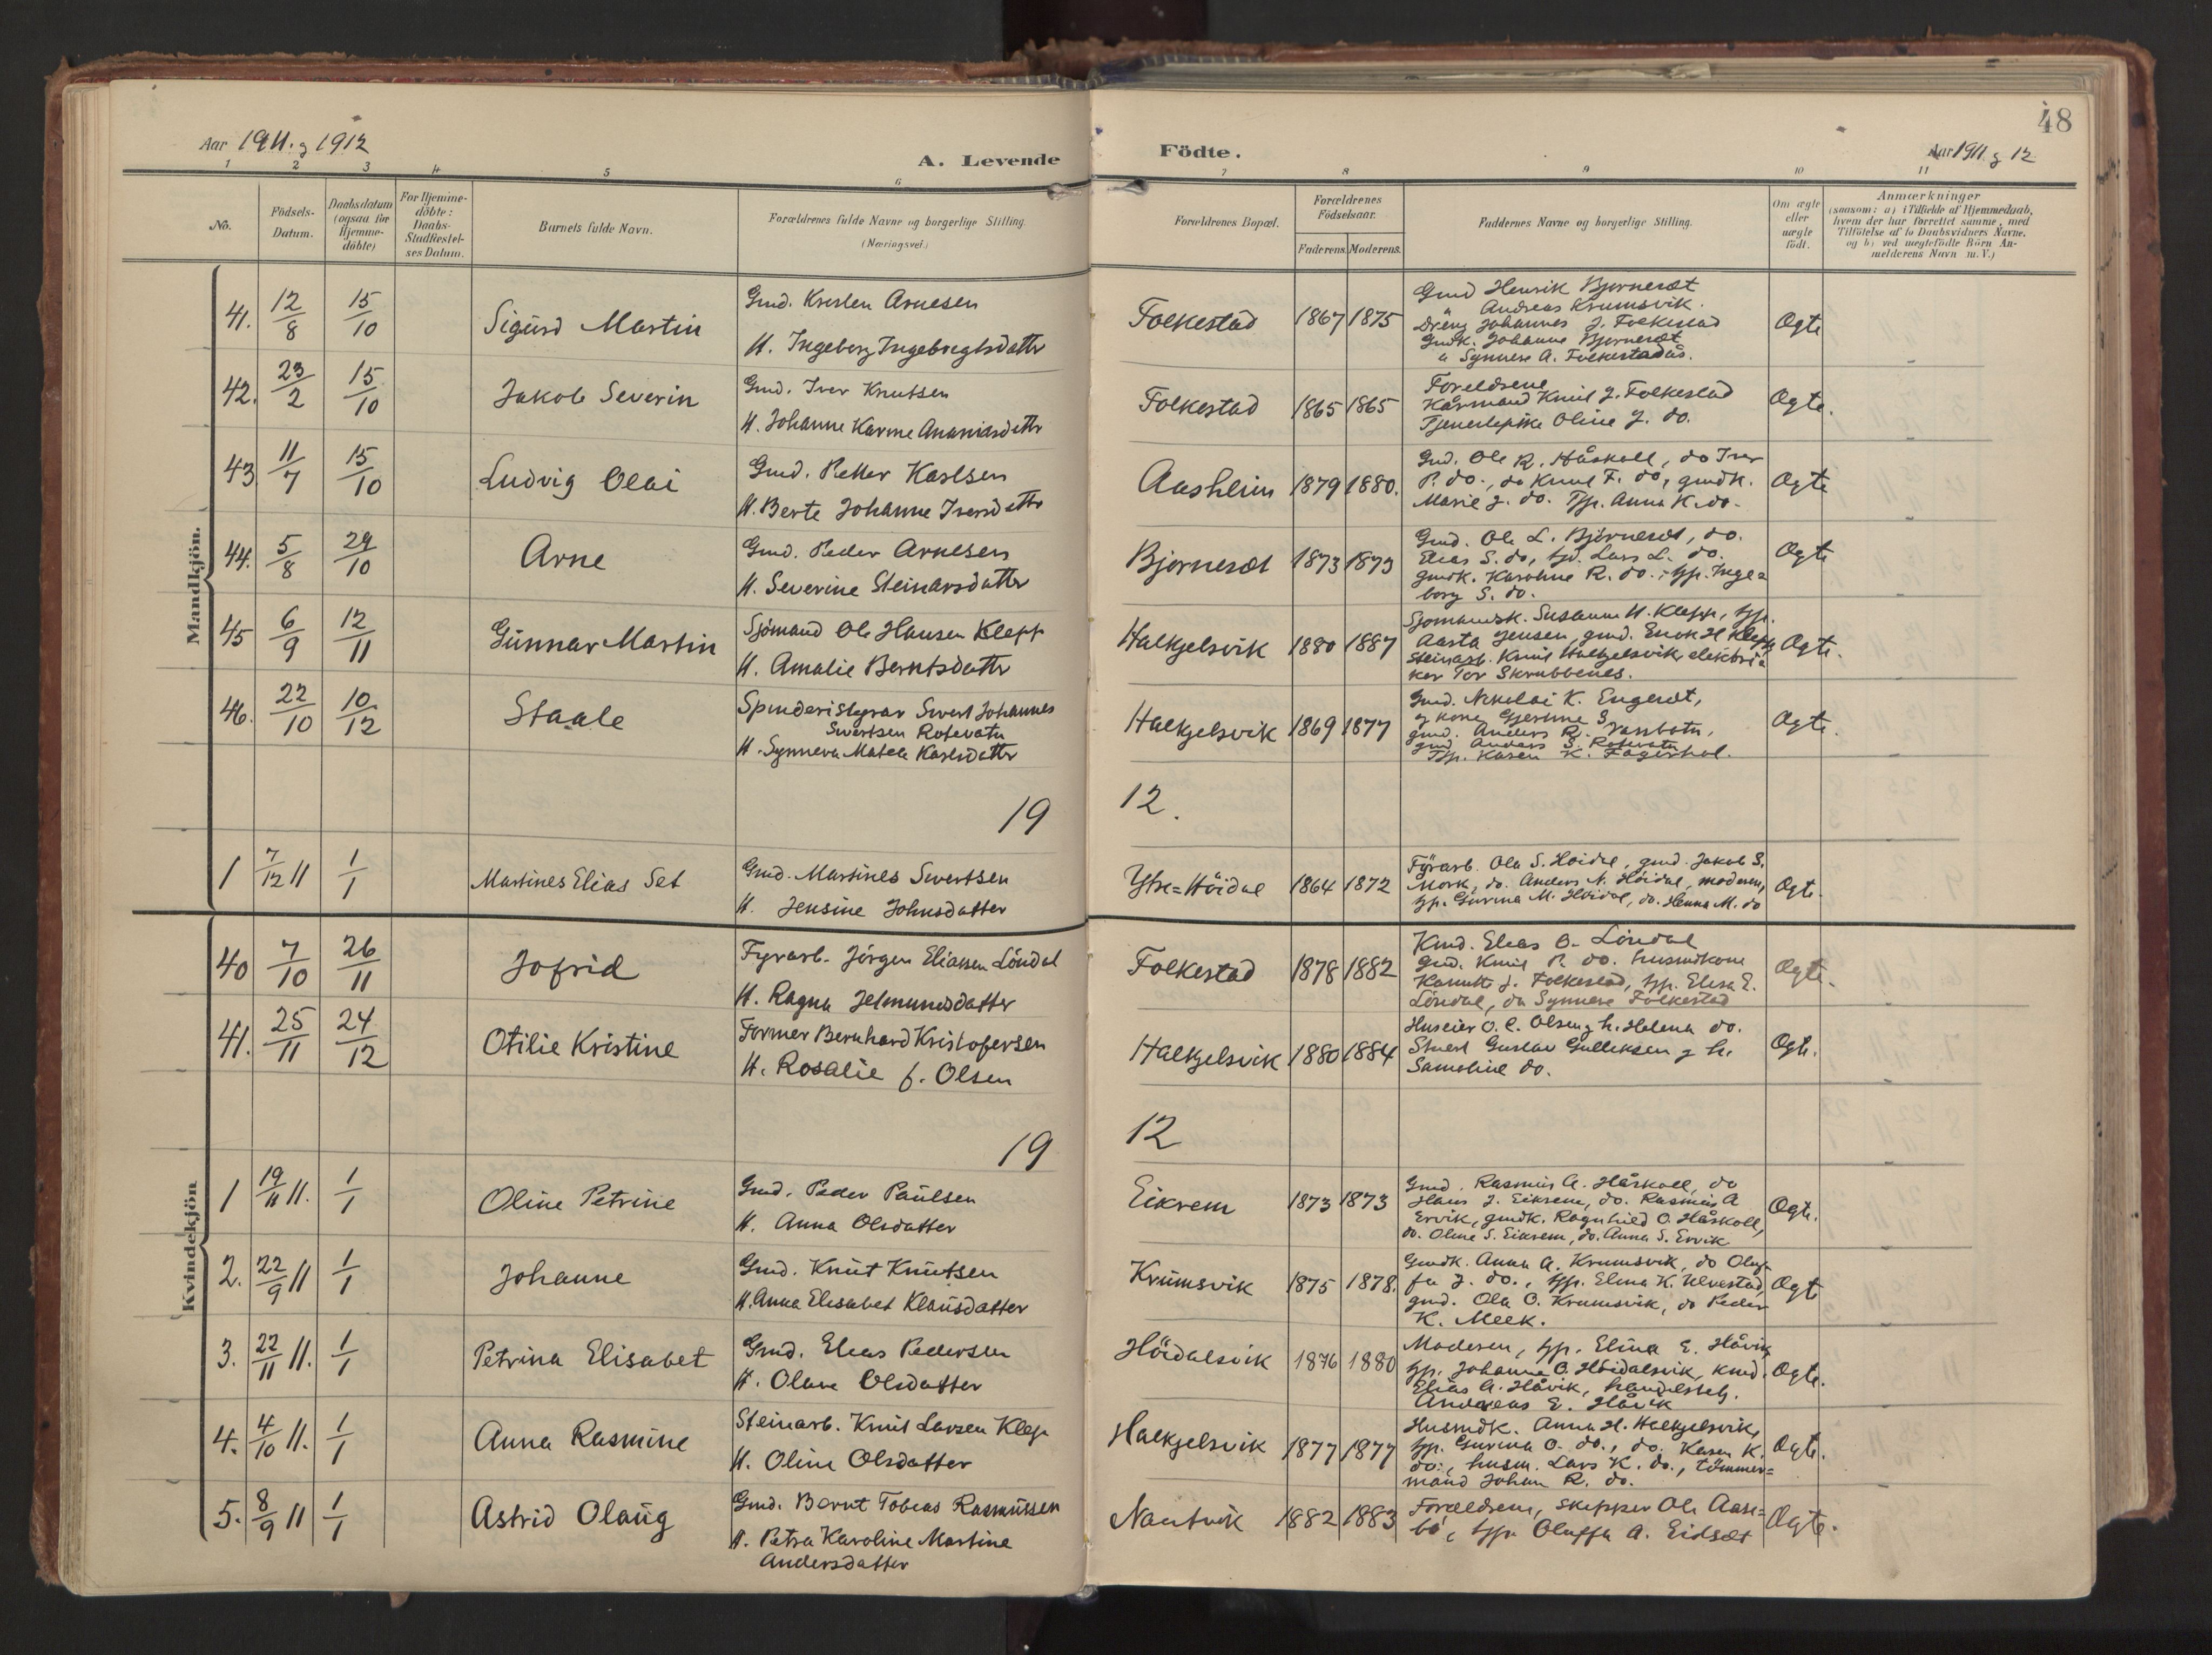 48
Aar 1911. g 1912
A. Levende
Födte.
Aar 1911 g 12
1 2 3 4 5 6 7 8 9 10 11
No.
Födsels-
Datum.
Daabsdatum
(ogsaa for
Hjemme-
döbte)
For Hjemme-
döbte:
Daabs-
Stadfæstel-
ses Datum.
Barnets fulde Navn.
Forældrenes fulde Navne og borgerlige Stilling.
(Næringsvei.)
Forældrenes Bopæl.
Forældrenes
Födselsaar.
Faderens. Moderens.
Faddernes Navne og borgerlige Stilling.
Om ægte
eller
uægte
födt.
Anmærkninger
(saasom: a) i Tilfælde af Hjemmedaab,
hvem der har forrettet samme, med
Tilföielse af to Daabsvidners Navne,
og b) ved uægtefödte Börn An-
melderens Navn m. V.)
Mandkjön.
41. 12/8 15/10 Sigurd Martin
Gmd. Kristen Arnesen
H. Ingeborg Ingebregtsdattr
Folkestad 1867 1875
Gmd Henrik Bjørneset
" Andreas Krumsvik.
Dreng Johannes J. Folkestad
Gmdk. Johanne Bjørneset
" Synnere A. Folkestadås.
Ogte
42. 23/2 15/10 Jakob Severin
Gmd. Iver Knutsen
H. Johanne Karine Ananiasdattr
Folkestad 1865 1865
Foreldrene
Kårmand Knut J. Folkestad
Tjenestepike Oline J. do.
Ogte.
43 11/7 15/10 Ludvig Olai
Gmd. Petter Karlsen
H. Berte Johanne Iversdattr
Aasheim 1879 1880.
Gmd. Ole R. Håskoll, do Iver
P. do., do Knut F. do, gmdk.
Marie J. do. Tjp. Anna K. do.
Ogte
44. 5/8 29/10 Arne
Gmd. Peder Arnesen
H. Severine Steinarsdattr
Bjørneset 1873 1873
Gmd. Ole L. Bjørneset, do.
Elias S. do, tjd. Lars L. do.
gmdk. Karoline R. do., tjp. Inge=
borg S. do.
Ogte
45 6/9 12/11 Gunnar Martin
Sjömand Ole Hansen Klepp
H. Amalie Berntsdattr
Halkjelsvik 1880 1887
Sjömandsk. Susanne H. Klepp, tjp.
Aasta Jensen, gmd. Enok H Klepp
Steinarb. Knut Halkjelsvik, elektri=
ker Tor Skrubbenes.
Ogte.
46. 22/10 10/12 Staale
Spinderistyrar Sivert Johannes
Sivertsen Rotevatn
H. Synneva Matea Karlsdattr
Halkjelsvik 1869 1877
Gmd. Nikolai K. Engeset,
g kone Gjertine S.
gmd. Anders R. Vassbotn,
gmd Anders S. Rotevatn
Tjp. Karen K. Fagerhol.
Ogte.
19 12.
1 7/12 11 1/1 Martines Elias Set
Gmd. Martines Sivertsen
H. Jensine Johnsdatter
Ytre=Höidal 1864 1872
Fyrarb. Ola S. Höidal, gmd. Jakob S.
Mork, do. Anders N. Höidal, moderen,
tjp. Gurina M. Höidal, do. Henna M. do
Ogte.
Kvindekjön
40 7/10 26/11 Jofrid
Fyrarb. Jörgen Eliassen Löndal
H. Ragna Jetmundsdatter
Folkestad 1878 1882
Kmd. Elias O. Löndal
Gmd. Knut P. do. husmdkone
J. Folkestad, tjp. Elisa E.
Löndal, do Synnere Folkestad
Ogte.
41. 25/11 24/12 Otilie Kristine
Former Bernhard Kristofersen
H. Rosalie f. Olsen
Halkjelsvik 1880 1884
Huseier O. C. Olsen g h. Helena do.
Stuert Gustav Gulliksen g h.
Samoline do.
Ogte.
19 12
1 19/11 11. 1/1 Oline Petrine
Gmd. Peder Paulsen
H. Anna Olsdatter
Eikrem 1873 1873
Gmd. Rasmus A. Håskoll, do
Hans J. Eikrem, do. Rasmus A
Ervik, gmdk. Ragnhild O. Håskoll,
do. Oline S. Eikrem, do. Anna S. Ervik
Ogte.
2. 22/9 11 1/1 Johanne
Gmd. Knut Knutsen
H. Anna Elisabet Klausdatter
Krumsvik 1875 1878.
Gmdk. Anna A. Krumsvik, do Oluf-
fa J. do., tjp. Elina K. Ulvestad,
gmd. Ola O. Krumsvik, do Peder
K. Meek.
Ogte
3. 22/11 11. 1/1 Petrina Elisabet
Gmd. Elias Pedersen
H. Olave Olsdatter
Höidalsvik 1876 1880
Moderen, tjp. Elina E. Håvik
tjp. Johanne O. Höidalsvik, kmd.
Elias A. Håvik, handelsbetj.
Andreas E. Håvik
Ogte.
4. 4/10 11. 1/1 Anna Rasmine
Steinarb. Knut Larsen Klep
H. Oline Olsdatter
Halkjelsvik 1877 1877
Husmdk. Anna H. Halkjelsvik,
tjp. Gurina O. do., do. Karen K.
do., husm. Lars K. do., tömmer=
mand Johan R. do.
Ogte.
5. 8/9 11 1/1 Astrid Olaug
Gmd. Bernt Tobias Rasmussen
H. Petra Karoline Martine
Andersdatter
Nautvik 1882 1883
Foreldrene, skipper Ole Aase=
bö, tjp. Oluffa A. Eidset
Ogte.